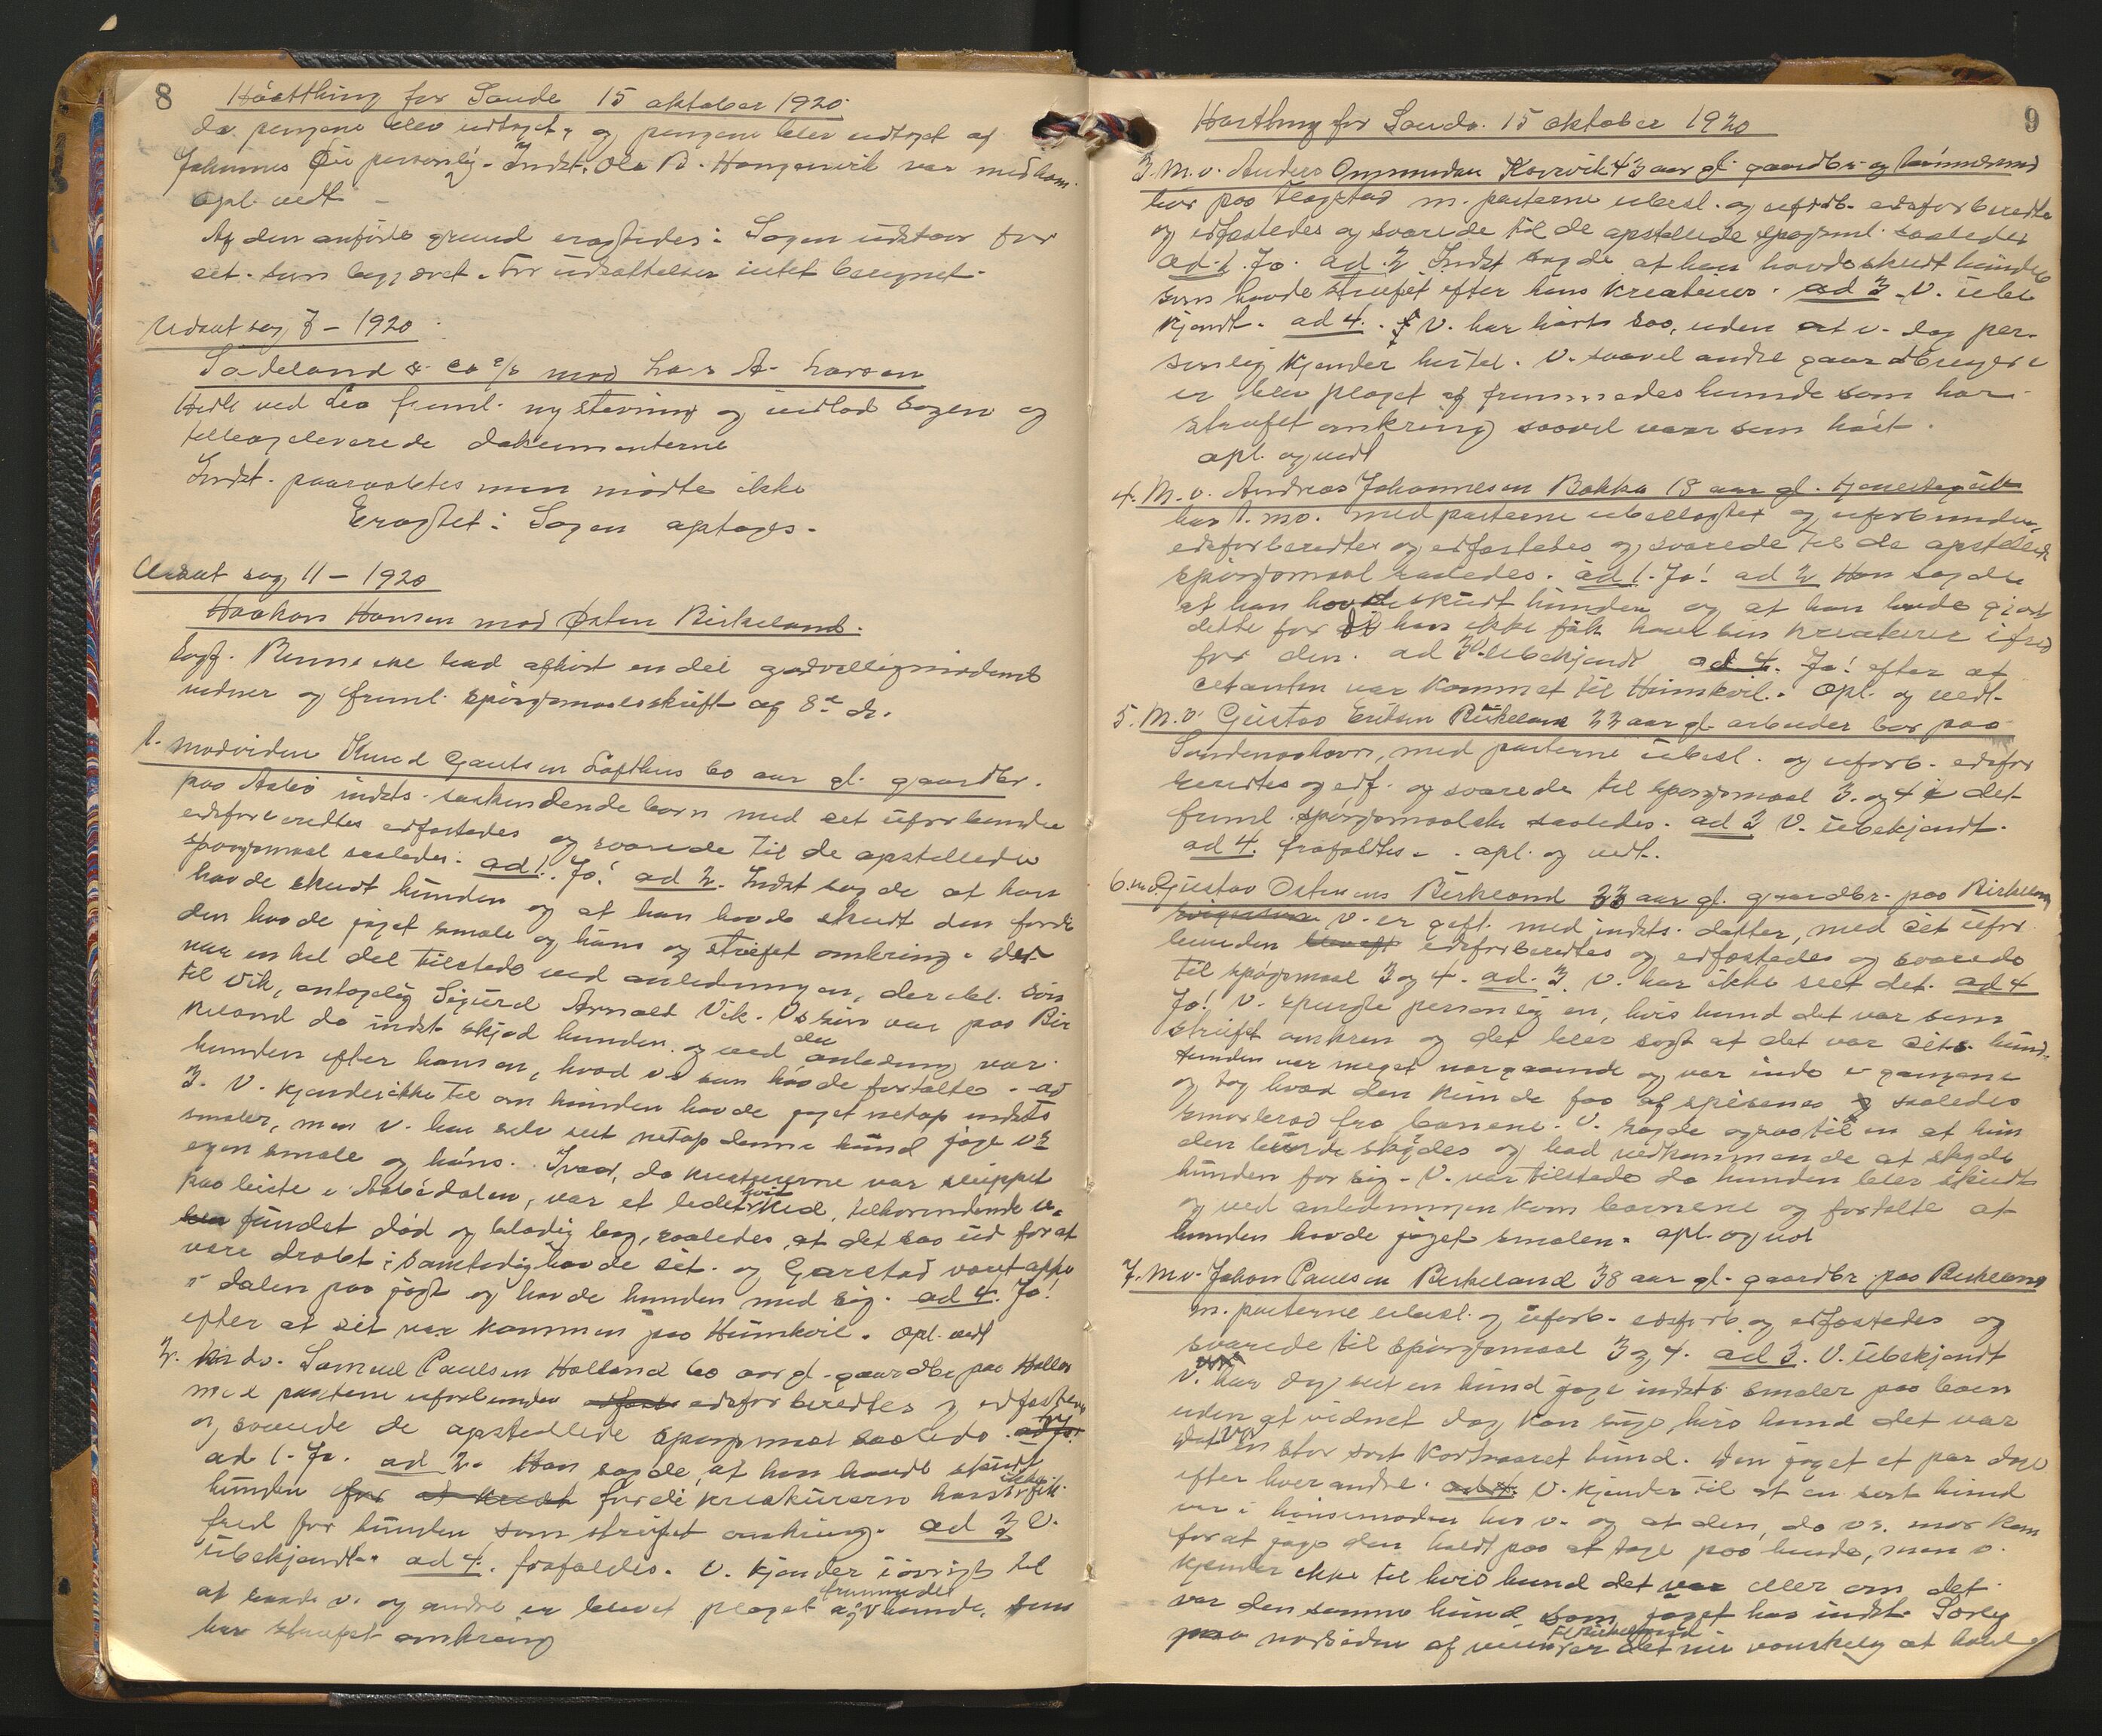 8
Hästthing for Saude 15 oktober 1920.
da pengene blev udtaget, og pengene blev udtaget af
Johannes Øie personlig. Indst. Ole B. Hanganvik var med ham.
opl. vedt. -
Af den anførte grund eragtedes: Sagen udstaar for
cit. som begjæret. For udsættelsen intet beregnet.
Udsat sag 7 - 1920.
Sadeland & Co A/S mod Lars A. Larsen
ved Lea freml. ny stevning og indlod sagen og
tillagde leverede dokumenterne
Indst. paaraabtes men mødte ikke
Eragtet: Sagen optages.
Udsat sag 11 - 1920
Haakon Hansen mod Østen Birkeland.
Sagf. Rynning lod afhøre endel godvilligmødende
vidner og freml. spörgsmaalsskrift af 8de ds.
1. modvidne Knud Gautsen Lofthus 60 aar gl. gaardbr.
paa Asbø indsts. søskendebarn med cit. uforbunden
edsforberedtes edfæstedes og svarede til de opstillede
spørgsmaal saaledes: ad 1. Jo! ad 2. Indst sagde at han
havde skudt hunden og at han havde skudt den fordi
den havde jaget smale og høns og streifet omkring. Der
var en hel del tilstede ved anledningen, deribl. søn
til Vik, antagelig Sigurd Arnold Vik. Vs søn var paa Bir
keland da indst. skjød hunden og ved den anledning var
hunden efter hønsene, hvad vs søn havde fortalte. ad
3. V. kjender ikke til om hunden havde jaget netop indsts
smaler, men v. har selv seet netop denne hund jage vs
egen smale og høns. Ivaar, da kreaturerne var sluppet
paa beite i Asbødalen, var et lidet hvit kid, tilhørende v.
blev fundet død og blodig bag, saaledes, at det saa ud for at
være dræbt; samtidig havde cit. og Garstad været oppe
i dalen paa jagt og havde hunden med sig. ad 4. Jo!
efter at cit var kommen paa Humkvil. Opl. vedt
2. m.v. Samuel Paulsen Holland 60 aar gl. gaardbr. paa Hollan
med parterne uforbunden edsforberedtes og edfæstedes
og svarede de opstillede spørgsmaal saaledes.
ad 1. Jo. ad 2. Han sagde, at han havde skudt
hunden for at kreat fordi kreaturerne hans ikke fik
fred for hunden som streifet omkring. ad 3 V.
übekjendt. ad 4. frafaldes. V. kjender iøvrigt til
at baade v. og andre er blevet plaget af fremmede hunde, som
har streifet omkring
9
Hostthing for Saude. 15 oktober 1920
3. M.v. Anders Ommundsen Kovrvik 43 aar gl. gaardbr. og
bor paa m. parterne ubesl. og uforb. edsforberedtes
og edfæstedes og svarede til de opstillede spørgsml. saaledes
ad. 1. Jo. ad. 2 Indst sagde at han havde skudt hunden
som havde streifet efter hans kreaturer. ad 3. V. ube
kjendt. ad 4. V. har hørt saa, uden at v. dog per-
sonlig kjender hertil. V. saavel andre gaardbrugere
er blev plaget af fremmedes hunde som har
streifet omkring saavel vaar som höst.
opl. og vedt
4. M.v. Andreas Johannesen Bakka 18 aar gl. tjenestegut
hos 1. mv. med parterne ubeslægtet og uforbunden,
edsforberedtes og edfæstedes og svarede til de opstillede
spörgsmaal saaledes. ad 1. Jo! ad 2 Han sagde
at han havde skudt hunden og at han havde gjort
dette for di han ikke fik have sin kreaturer ifred
for den. ad 3. Ubekjendt ad 4. Jo! efter at
citanten var kommet til Humkvil. Opl. og vedt.
5. M.v. Gustav Eriksen Birkeland 23 aar gl. arbeider bor paa
med parterne ubesl. og uforb. edsfor
beredtes og edf. og svarede til spørgsmaal 3. og 4 i det
freml. spørgsmaalsskr. saaledes. ad 3 V. übekjendt.
ad 4. frafaldtes. - opl. og vedt.
6. m.v. Gustav Ostensen Birkeland 33 aar gl. gaardbr. paa Birkeland
V. er gift med indsts. datter, med cit ufor
bunden edsforberedtes og edfæstedes og svarede
til spørgsmaal 3 og 4. ad. 3. V. har ikke seet det. ad 4
Jo! V. spurgte personlig en, hvis hund det var som
streifet omkring og det blev sagt at det var cits. hund.
Hunden var meget nærgaaende og var inde i gangene
og tog hvad den kunde faa af spisenes og saaledes
smørbrød fra barnene. V. sagde ogsaa til en at hun
den burde skydes og bad vedkommende at skyde
hunden for sig. V. var tilstede da hunden blev skudt
og ved anledningen kom barnene og fortalte at
hunden havde jaget smalen. opl. og vedt
7. M.v. Johan Paulsen Birkeland 38 aar gl. gaardbr paa Birkeland
m. parterne ubesl. og uforb. edsforb. og edfæstedes og
svarede til spørgsmaal 3 og 4. ad 3. V. übekjendt
V. har dog seet en hund jage indsts smaler paa bøen
uden at vidnet dog kan sige hvis hund det var
Det var en stor sort korthaaret hund. Den jaget et par dage
efter hverandre. ad 4. V. kjender til at en sort hund
var i hönsemaden hos v. og at den, da vs. mor kom
for at jage den holdt paa at tage paa hende, men v.
kjender ikke til hvis hund det var eller om det
var den samme hund som jaget hos indst. Sørlig
paa nordsiden af til Birkeland er det vanskelig at holde